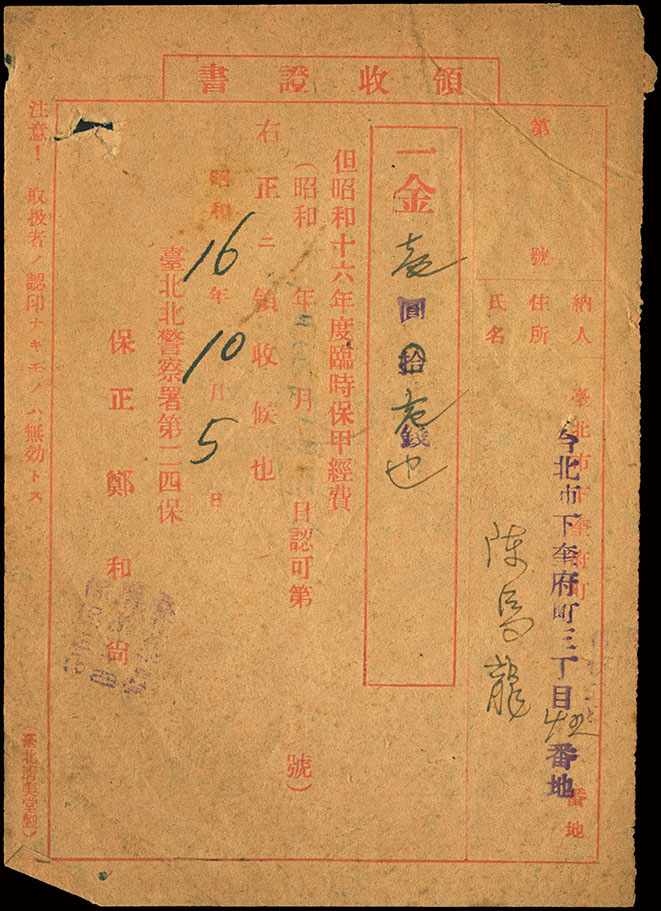 領收證書
第　　號
納人
住所
氏名
臺北市下奎府町　　番地
台北市下奎府町三丁目　番地
陳馬龍
一金壱圓拾壱錢也
但昭和十六年度臨時保甲經費
（昭和　年　月　日認可第　　號）
右正ニ領收候也
昭和16年10月5日
臺北北警察署第二四保
保正鄭和尚
注意！取扱者ノ認印ナキモノハ無効トス